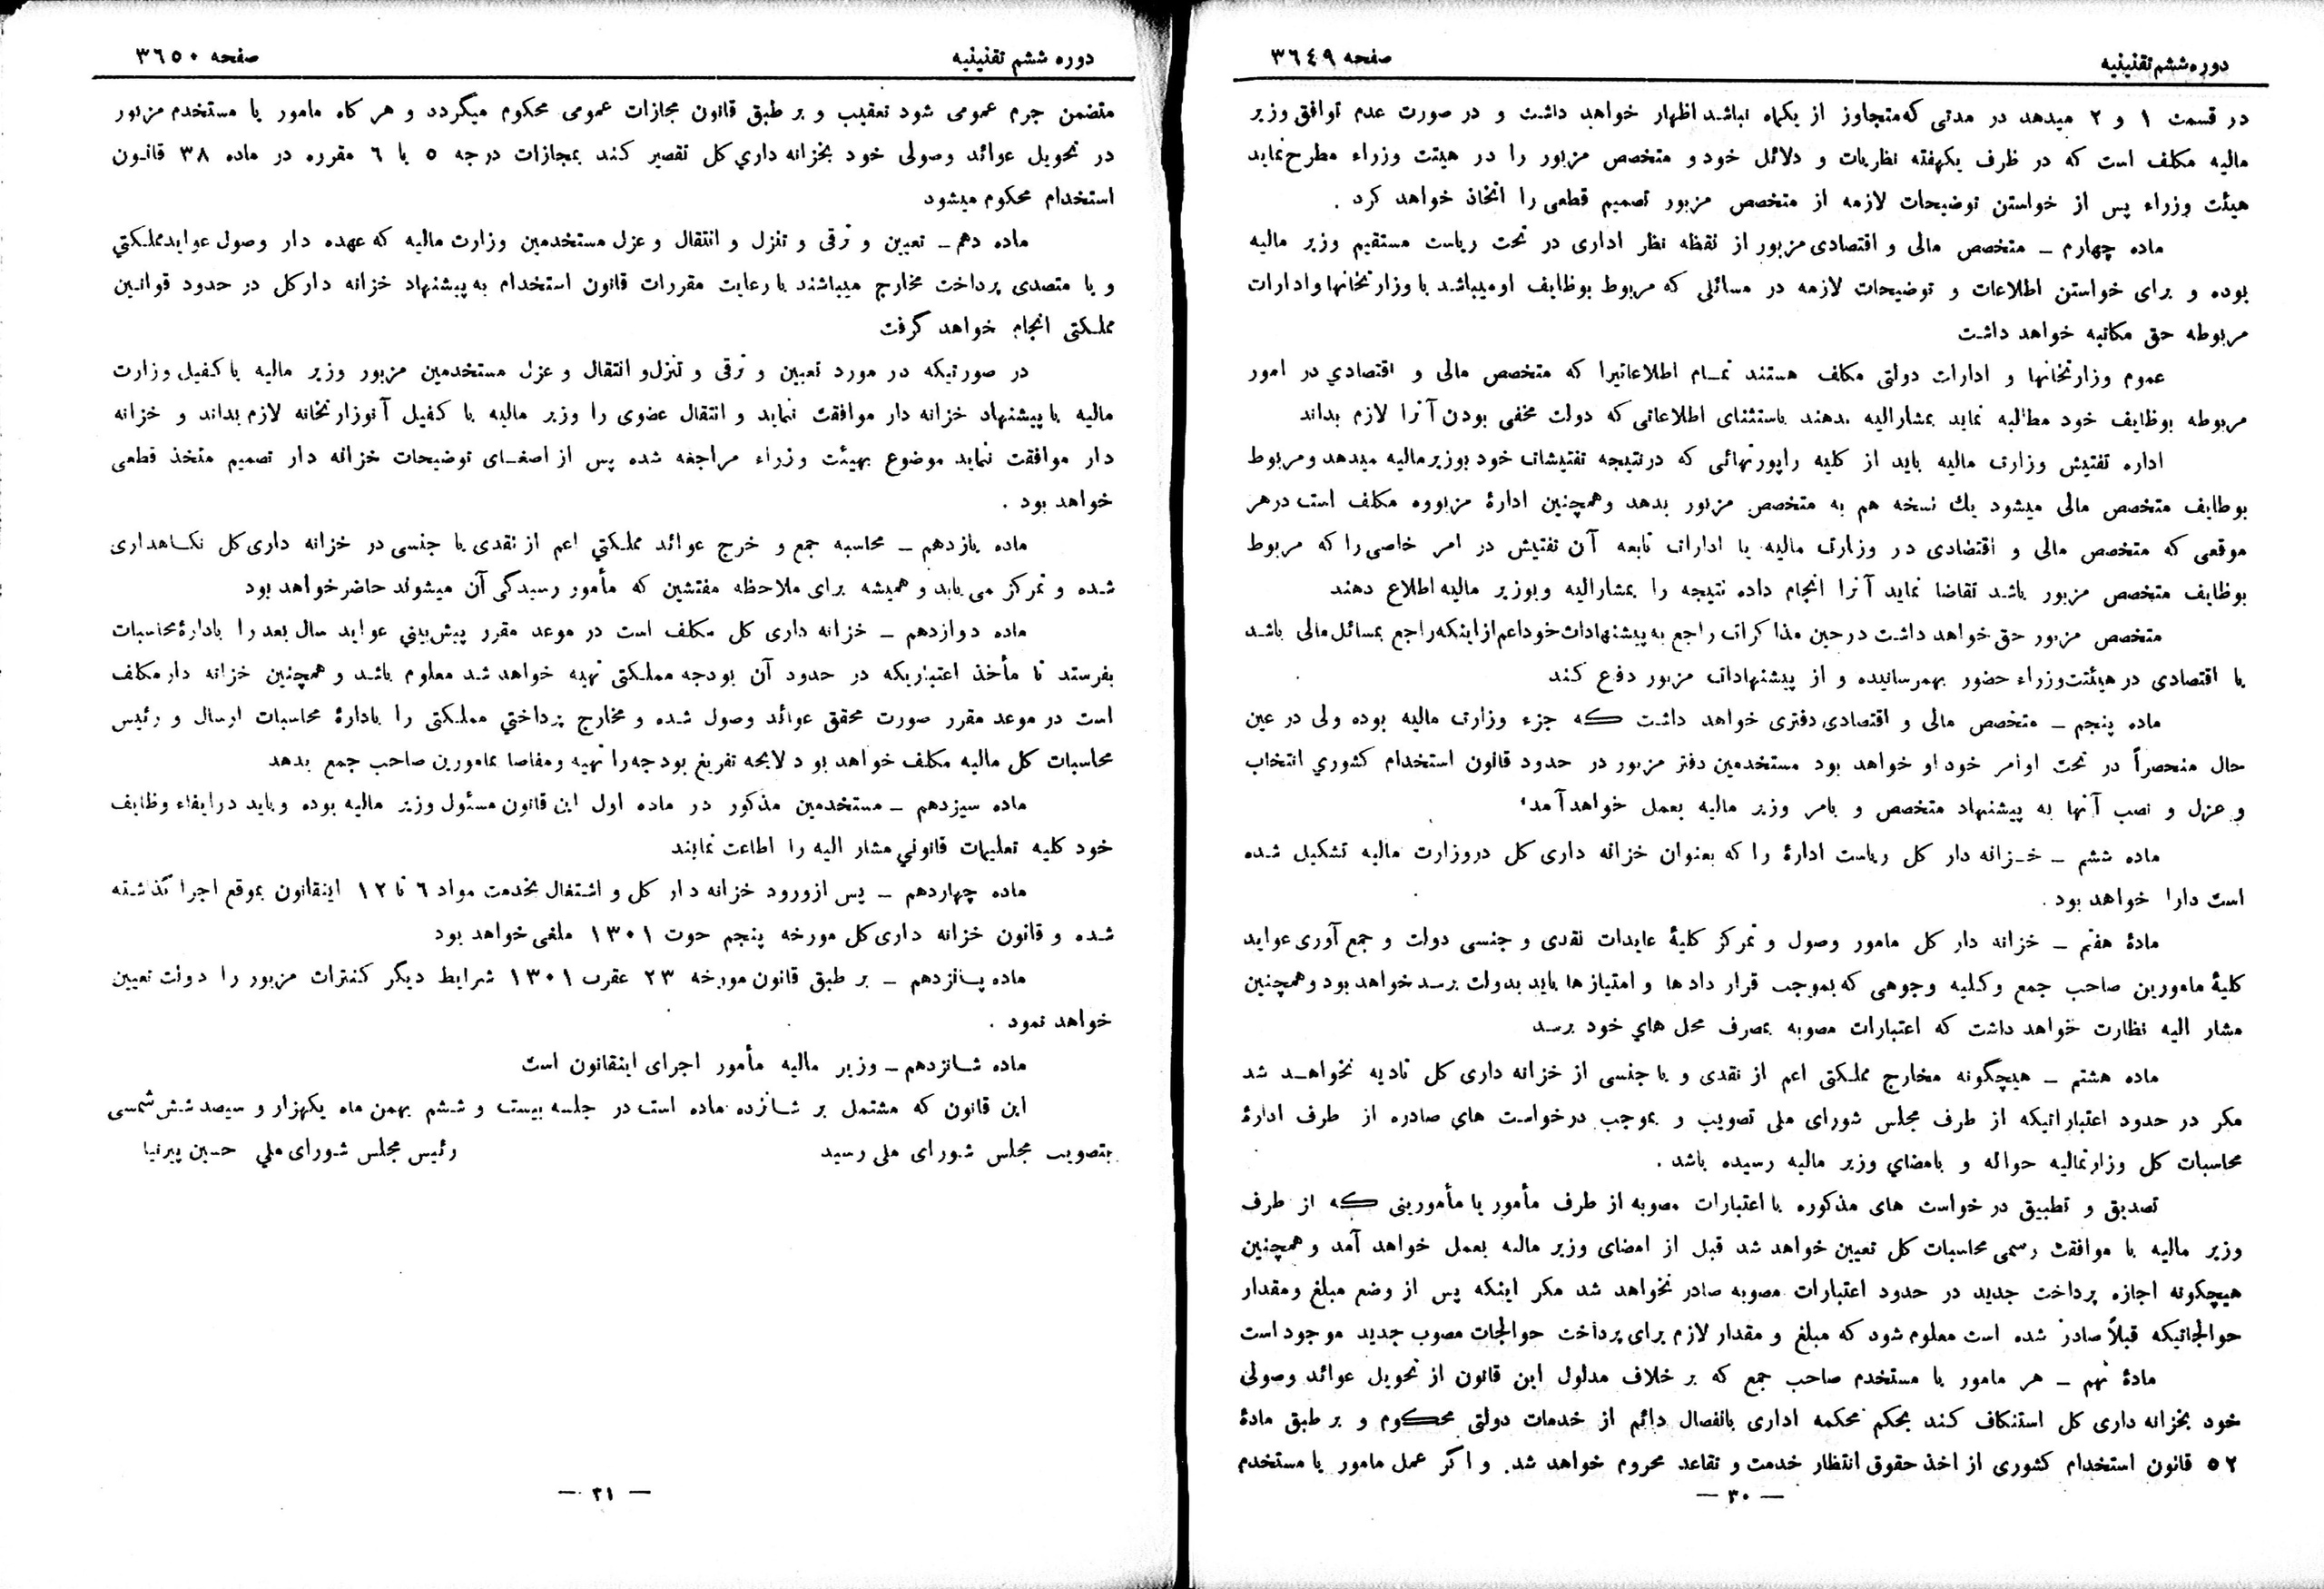 دوره ششم تقنینیه
صفحه ۳٦٤۹
در قسمت ۱ و ۲ میدهد در مدتی که متجاوز از یکماه نباشد اظهار خواهد داشت و در صورت عدم توافق وزیر
مالیه مکلف است که در ظرف یکهفته نظریات و دلائل خود و متخصص مزبور را در هیئت وزراء مطرح نماید
هیئت وزراء پس از خواستن توضیحات لازمه از متخصص مزبور تصمیم قطعی را اتخاذ خواهد کرد .
ماده چهارم ـ متخصص مالی و اقتصادی مزبور از نقطه نظر اداری در تحت ریاست مستقیم وزیر مالیه
بوده و برای خواستن اطلاعات و توضیحات لازمه در مسائلی که مربوط بوظایف او میباشد با وزارتخانها و ادارات
مربوطه حق مکاتبه خواهد داشت
عموم وزارتخانها و ادارات دولتی مکلف هستند تمـام اطلاعاتیرا که متخصص مالی و اقتصادي در امور
مربوطه بوظایف خود مطالبه نماید بمشارالیه بدهند باستثنای اطلاعاتی که دولت مخفی بودن آنرا لازم بداند
اداره تفتیش وزارت مالیه باید از کلیه راپورتهائی که درنتیجه تفتیشات خود بوزیر مالیه میدهد و مربوط
بوظایف متخصص مالی میشود یك نسخه هم به متخصص مزبور بدهد و همچنین ادارۀ مزبووه مکلف است در هر
موقعی که متخصص مالی و اقتصادی در وزارت مالیه یا ادارات تابعه آن تفتیش در امر خاصی را که مربوط
بوظایف متخصص مزبور باشد تقاضا نماید آنرا انجام داده نتیجه را بمشارالیه و بوزیر مالیه اطلاع دهند
متخصص مزبور حق خواهد داشت در حین مذاکرات راجع به پیشنهادات خود اعم از اینکه راجع بمسائل مالی باشد
یا اقتصادی در هیئت وزراء حضور بهمرسانیده و از پیشنهادات مزبور دفاع کند
ماده پنجم ـ متخصص مالی و اقتصادی دفتری خواهد داشت که جزء وزارت مالیه بوده ولی در عین
حال منحصراً در تحت اوامر خود او خواهد بود مستخدمین دفتر مزبور در حدود قانون استخدام کشوري انتخاب
و عزل و نصب آنها به پیشنهاد متخصص و بامر وزیر مالیه بعمل خواهد آمد
ماده ششم ـ خـزانه دار کل ریاست ادارۀ را که بعنوان خزانه داری کل در وزارت مالیه تشکیل شده
است دارا خواهد بود .
مادۀ هفتم ـ خزانه دار کل مامور وصول و تمرکز کلیۀ عایدات نقدی و جنسی دولت و جمع آوری عواید
کلیۀ مامورین صاحب جمع و کلیه وجوهی که بموجب قرار داد ها و امتیاز ها باید بدولت برسد خواهد بود و همچنین
مشار الیه نظارت خواهد داشت که اعتبارات مصوبه بمصرف محل هاي خود برسد
ماده هشتم ـ هیچگونه مخارج مملکتی اعم از نقدی و یا جنسی از خزانه داری کل تادیه نخواهـد شد
مکر در حدود اعتباراتیکه از طرف مجلس شورای ملی تصویب و بموجب درخواست هاي صادره از طرف ادارۀ
محاسبات کل وزارتمالیه حواله و بامضاي وزیر مالیه رسیده باشد .
تصدیق و تطبیق درخواست های مذکوره با اعتبارات مصوبه از طرف مأمور یا مأمورینی که از طرف
وزیر مالیه با موافقت رسمی محاسبات کل تعیین خواهد شد قبل از امضای وزیر مالیه بعمل خواهد آمد و همچنین
هیچکونه اجازه پرداخت جدید در حدود اعتبارات مصوبه صادر نخواهد شد مکر اینکه پس از وضع مبلغ و مقدار
حوالجاتیکه قبلاً صادر شده است معلوم شود که مبلغ و مقدار لازم برای پرداخت حوالجات مصوب جدید موجود است
مادۀ نهم ـ هر مامور یا مستخدم صاحب جمع که بر خلاف مدلول این قانون از تحویل عوائد وصولی
خود بخزانه داری کل استنکاف کند بحکم محکمه اداری بانفصال دائم از خدمات دولتی محکوم و بر طبق مادۀ
۵۲ قانون استخدام کشوری از اخذ حقوق انتظار خدمت و تقاعد محروم خواهد شد. و اکر عمل مامور یا مستخدم
— ۳۰ —
دوره ششم تقنینیه
صفحه ۳٦۵۰
متضمن جرم عمومی شود تعقیب و بر طبق قانون مجازات عمومی محکوم میگردد و هر کاه مامور یا مستخدم مزبور
در تحویل عوائد وصولی خود بخزانه داري کل تقصیر کند بمجازات درجه ۵ یا ٦ مقرره در ماده ۳۸ قانـون
استخدام محکوم میشود
ماده دهم ـ تعیین و ترقی و تنزل و انتقال و عزل مستخدمین وزارت مالیه که عهده دار وصول عواید مملکتي
و یا متصدی پرداخت مخارج میباشند با رعایت مقررات قانون استخدام به پیشنهاد خزانه دار کل در حدود قوانـین
مملکتی انجام خواهد گرفت
در صورتیکه در مورد تعیین و ترقی و تنزل و انتقال و عزل مستخدمین مزبور وزیر مالیه یا کفیل وزارت
مالیه با پیشنهاد خزانه دار موافقت ننماید و انتقال عضوی را وزیر مالیه یا کفیل آنوزارتخانه لازم بداند و خزانه
دار موافقت ننماید موضوع بهیئت وزراء مراجعه شده پس از اصغـای توضیحات خزانه دار تصمیم متخذ قطعی
خواهد بود .
ماده یازدهم ـ محاسبه جمع و خرج عوائد مملکتي اعم از نقدی یا جنسی در خزانه داری کل نکـاهداری
شده و تمرکز می یابد و همیشه برای ملاحظه مفتشین که مأمور رسیدگی آن میشوند حاضر خواهد بود
ماده دوازدهم ـ خزانه داری کل مکلف است در موعد مقرر پیش بیني عواید سال بعد را بادارۀ محاسبات
بفرستد تا مأخذ اعتباریکه در حدود آن بودجه مملکتی تهیه خواهد شد معلوم باشد و همچنین خزانه دار مکلف
است در موعد مقرر صورت محقق عوائد وصول شده و مخارج پرداختي مملکتی را بادارۀ محاسبات ارسال و رئیس
محاسبات کل مالیه مکلف خواهد بود لایحه تفریغ بودجه را تهیه و مفاصا بمامورین صاحب جمع بدهد
ماده سیزدهم ـ مستخدمین مذکور در ماده اول این قانون مسئول وزیر مالیه بوده و باید در ایفاء وظایف
خود کلیه تعلیمات قانوني مشار الیه را اطاعت نمایند
ماده چهاردهم ـ پس از ورود خزانه دار کل و اشتغال بخدمت مواد ٦ تا ۱۲ اینقانون بموقع اجرا گذاشته
شده و قانون خزانه داری کل مورخه پنجم حوت ۱۳۰۱ ملغی خواهد بود
ماده پـانزدهم ـ بر طبق قانون مورخه ۲۳ عقرب ۱۳۰۱ شرایط دیگر کنترات مزبور را دولت تعیین
خواهد نمود .
ماده شـانزدهم ـ وزیر مالیه مأمور اجرای اینقانون است
این قانون که مشتمل بر شـانزده ماده است در جلسه بیست و ششم بهمن ماه یکهزار و سیصد شش شمسی
بتصویب مجلس شورای ملی رسید
رئیس مجلس شورای ملي حسین پیرنیا
— ۳۱ —